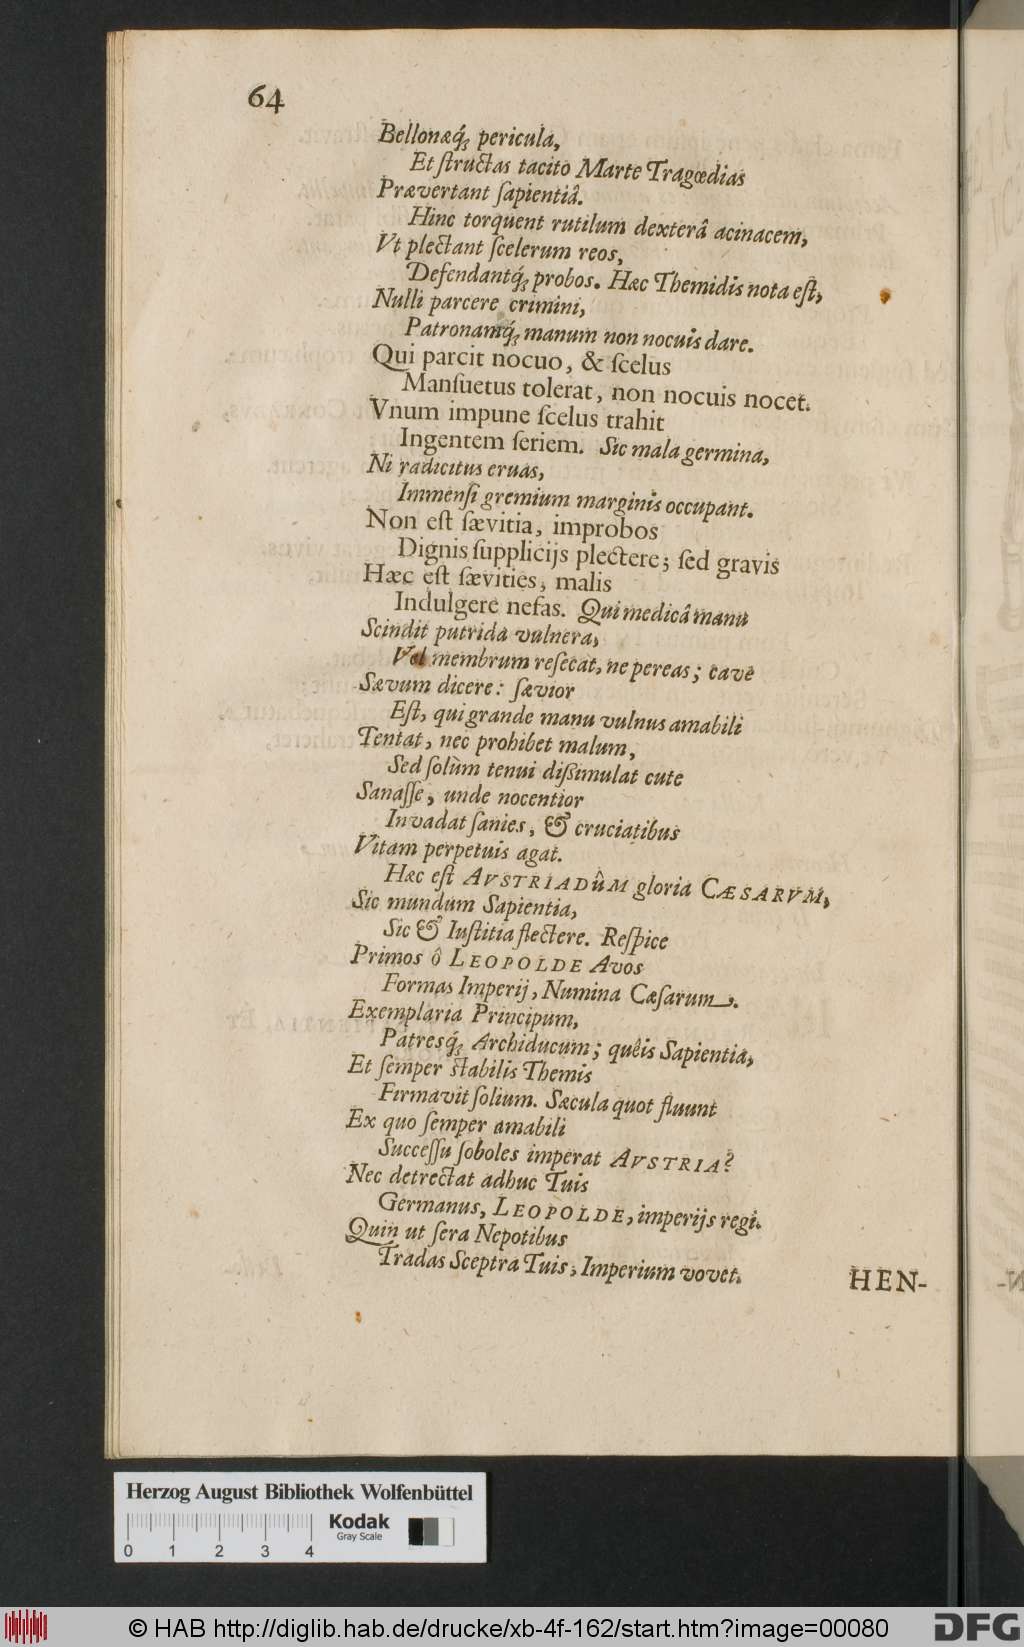 64
Bellonæq́; pericula,
Et ſtructas tacito Marte Tragœdias
Prævertant ſapientiâ.
Hinc torquent rutilum dexterâ acinacem,
Vt plectant ſcelerum reos,
Defendantq́; probos. Hæc Themidis nota eſt,
Nulli parcere crimini,
Patronamq́; manum non nocuis dare.
Qui parcit nocuo, & ſcelus
Manſuetus tolerat, non nocuis nocet.
Vnum impune ſcelus trahit
Ingentem ſeriem. Sic mala germina,
Ni radicitus eruas,
Immenſi gremium marginis occupant.
Non eſt ſævitia, improbos
Dignis ſupplicijs plectere; ſed gravis
Hæc eſt ſævities, malis
Indulgere nefas. Qui medicâ manu
Scindit putrida vulnera,
Vel membrum reſecat, ne pereas; cave
Sævum dicere: ſævior
Eſt, qui grande manu vulnus amabili
Tentat, nec prohibet malum,
Sed ſolùm tenui dißimulat cute
Sanaſſe, unde nocentior
Invadat ſanies, & cruciatibus
Vitam perpetuis agat.
Hæc eſt AVSTRIADûM gloria CÆSARVM,
Sic mundum Sapientia,
Sic & Iuſtitia flectere. Reſpice
Primos ô LEOPOLDE Avos
Formas Imperij, Numina Cæſarum.
Exemplaria Principum,
Patresq́; Archiducum; quêis Sapientia,
Et ſemper ſtabilis Themis
Firmavit ſolium. Sæcula quot fluunt
Ex quo ſemper amabili
Succeſſu ſoboles imperat AVSTRIA?
Nec detrectat adhuc Tuis
Germanus, LEOPOLDE, imperijs regi.
Quin ut ſera Nepotibus
Tradas Sceptra Tuis, Imperium vovet.
HEN-
Herzog August Bibliothek Wolfenbüttel
Kodak
Gray Scale
0 1 2 3 4
© HAB http://diglib.hab.de/drucke/xb-4f-162/start.htm?image=00080
DFG